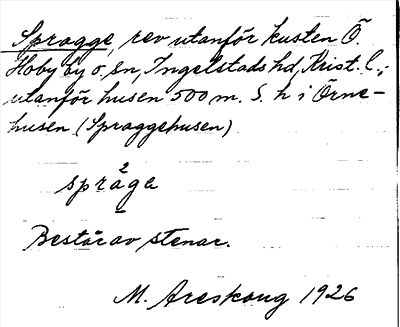 Spragge, rev utanför kusten Ö.
Hoby by o. sn, Ingelstads hd, Krist. l.;
utanför husen 500 m. S. h i Örne-
husen (Spraggehusen)
2
språga
Består av stenar.
M. Areskoug 1926